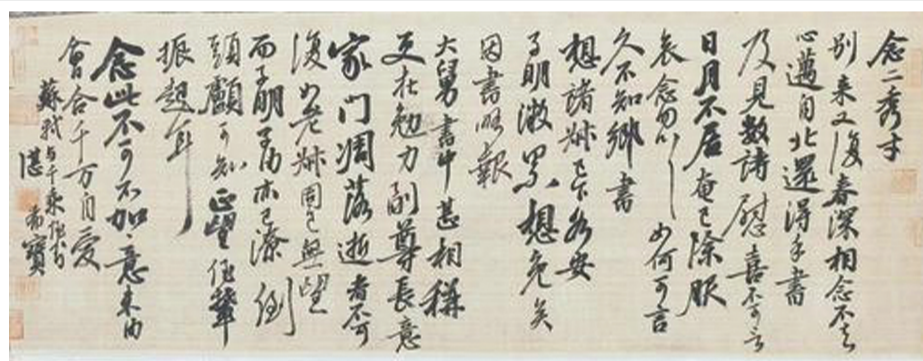 念二秀才
別来又復春深相念不去
心邁自北還得手書
及見數詩慰喜不可言
日月不居奄已除服
哀念忽忽如何可言
久不知鄉書
想諸叔已下各安
子明微累想免矣
因書略報
大舅書中甚相稱
更在勉力副尊長意
家門凋落逝者不可
復如老叔固已無望
而子明子由亦已潦倒
頭顱可知正望侄輩
振起耳
念此不可不加意未由
會合千万自愛
蘇軾与千乘侄書
湛 寶